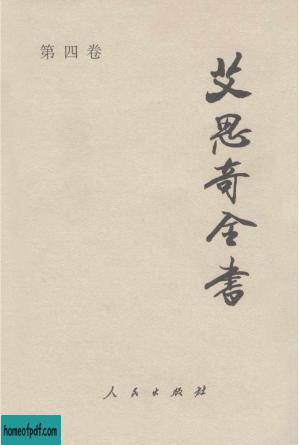 第四卷
艾思奇全书
人民出版社
homeofpdf.com